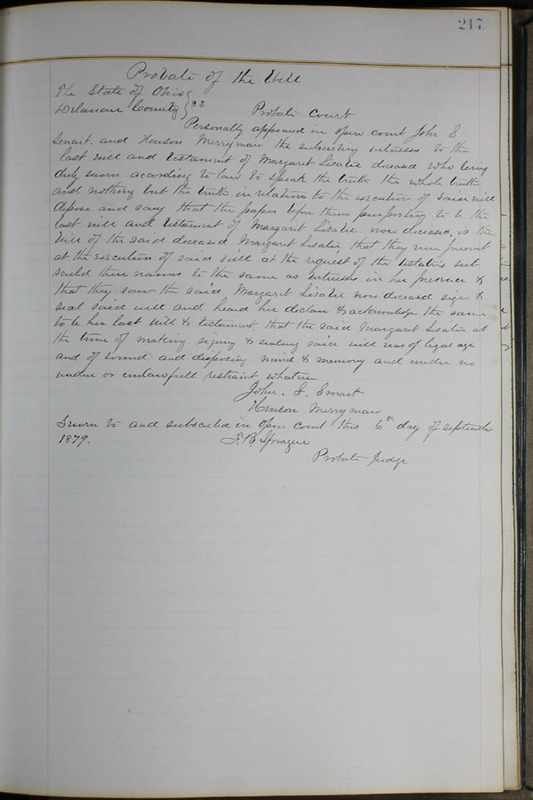 217
Probate of the Will
The State of Ohio
Delaware County } ss Probate Court
Personally appeared in open court John S
Smart and Henson Merryman the subscribing witnesses to the
last will and testament of Margaret deceased who being
duly sworn according to law to speak the truth the whole truth
and nothing but the truth in relation to the execution of said will
depose and say that the paper before them purporting to be the
last will and testament of Margart now deceased, is the
will of the said deceased Margaret that they were present
at the execution of said will at the request of the testatrix sub
scribed there names to the same as witnesses in her presence &
that they saw the said Margaret now deceased sign &
seal said will and heard her declare & acknowledge the same
to be her last will & testament, that the said Margaret at
the time of making signing & sealing said will was of legal age
and of sound and disposing mind & memory and under no
undue or unlawfull restraint whatever
John. S. Smart
Henson Merryman
Sworn to and subscribed in open court this 6th day of September
1879. Sprague
Probate Judge